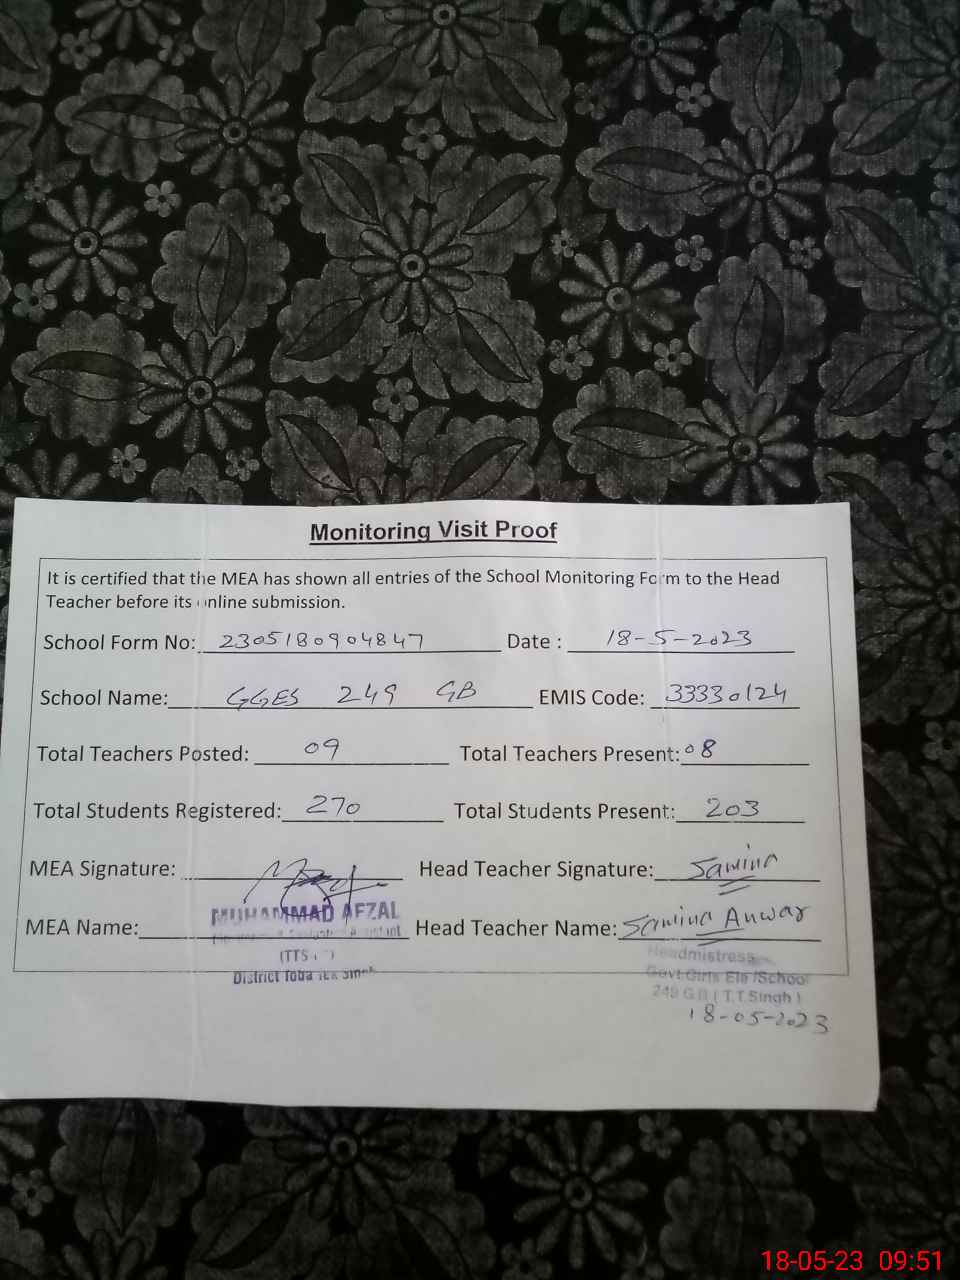 Monitoring Visit Proof
It is certified that the MEA has shown all entries of the School Monitoring Form to the Head
Teacher before its online submission.
School Form No: 2305180904847 Date : 18-5-2023
School Name: GGES 249 GB EMIS Code: 33330124
Total Teachers Posted: 09 Total Teachers Present: 08
Total Students Registered: 270 Total Students Present: 203
MEA Signature: Head Teacher Signature: Samina
MEA Name: MUHAMMAD AFZAL Head Teacher Name: Samina Anwar
Headmistress
District Toba Tek Singh
Govt. Girls Ele /School
249 G.B ( T.T.Singh )
18-05-2023
18-05-23 09:51